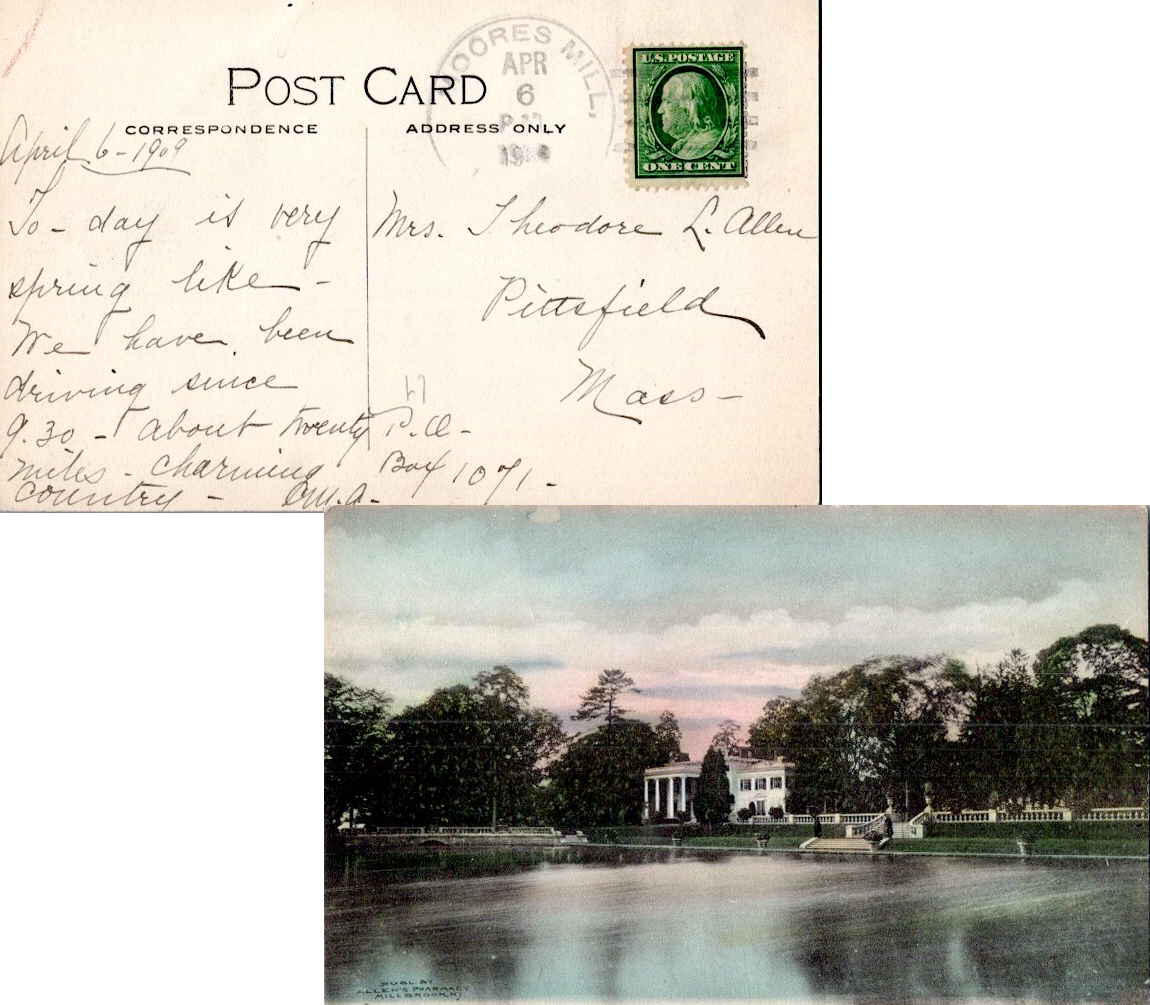 POST CARD
CORRESPONDENCE
ADDRESS ONLY
MOORES MILL,
APR
6
1909
U.S. POSTAGE
ONE CENT
April 6-1909
To-day is very
spring like -
We have been
driving since
9.30 - about twenty
miles - charming
country -
Mrs. Theodore L. Allen
Pittsfield
Mass -
P.O -
Box 1071 -
PUBL. BY
ALLEN'S PHARMACY
MILLBROOK, N.Y.